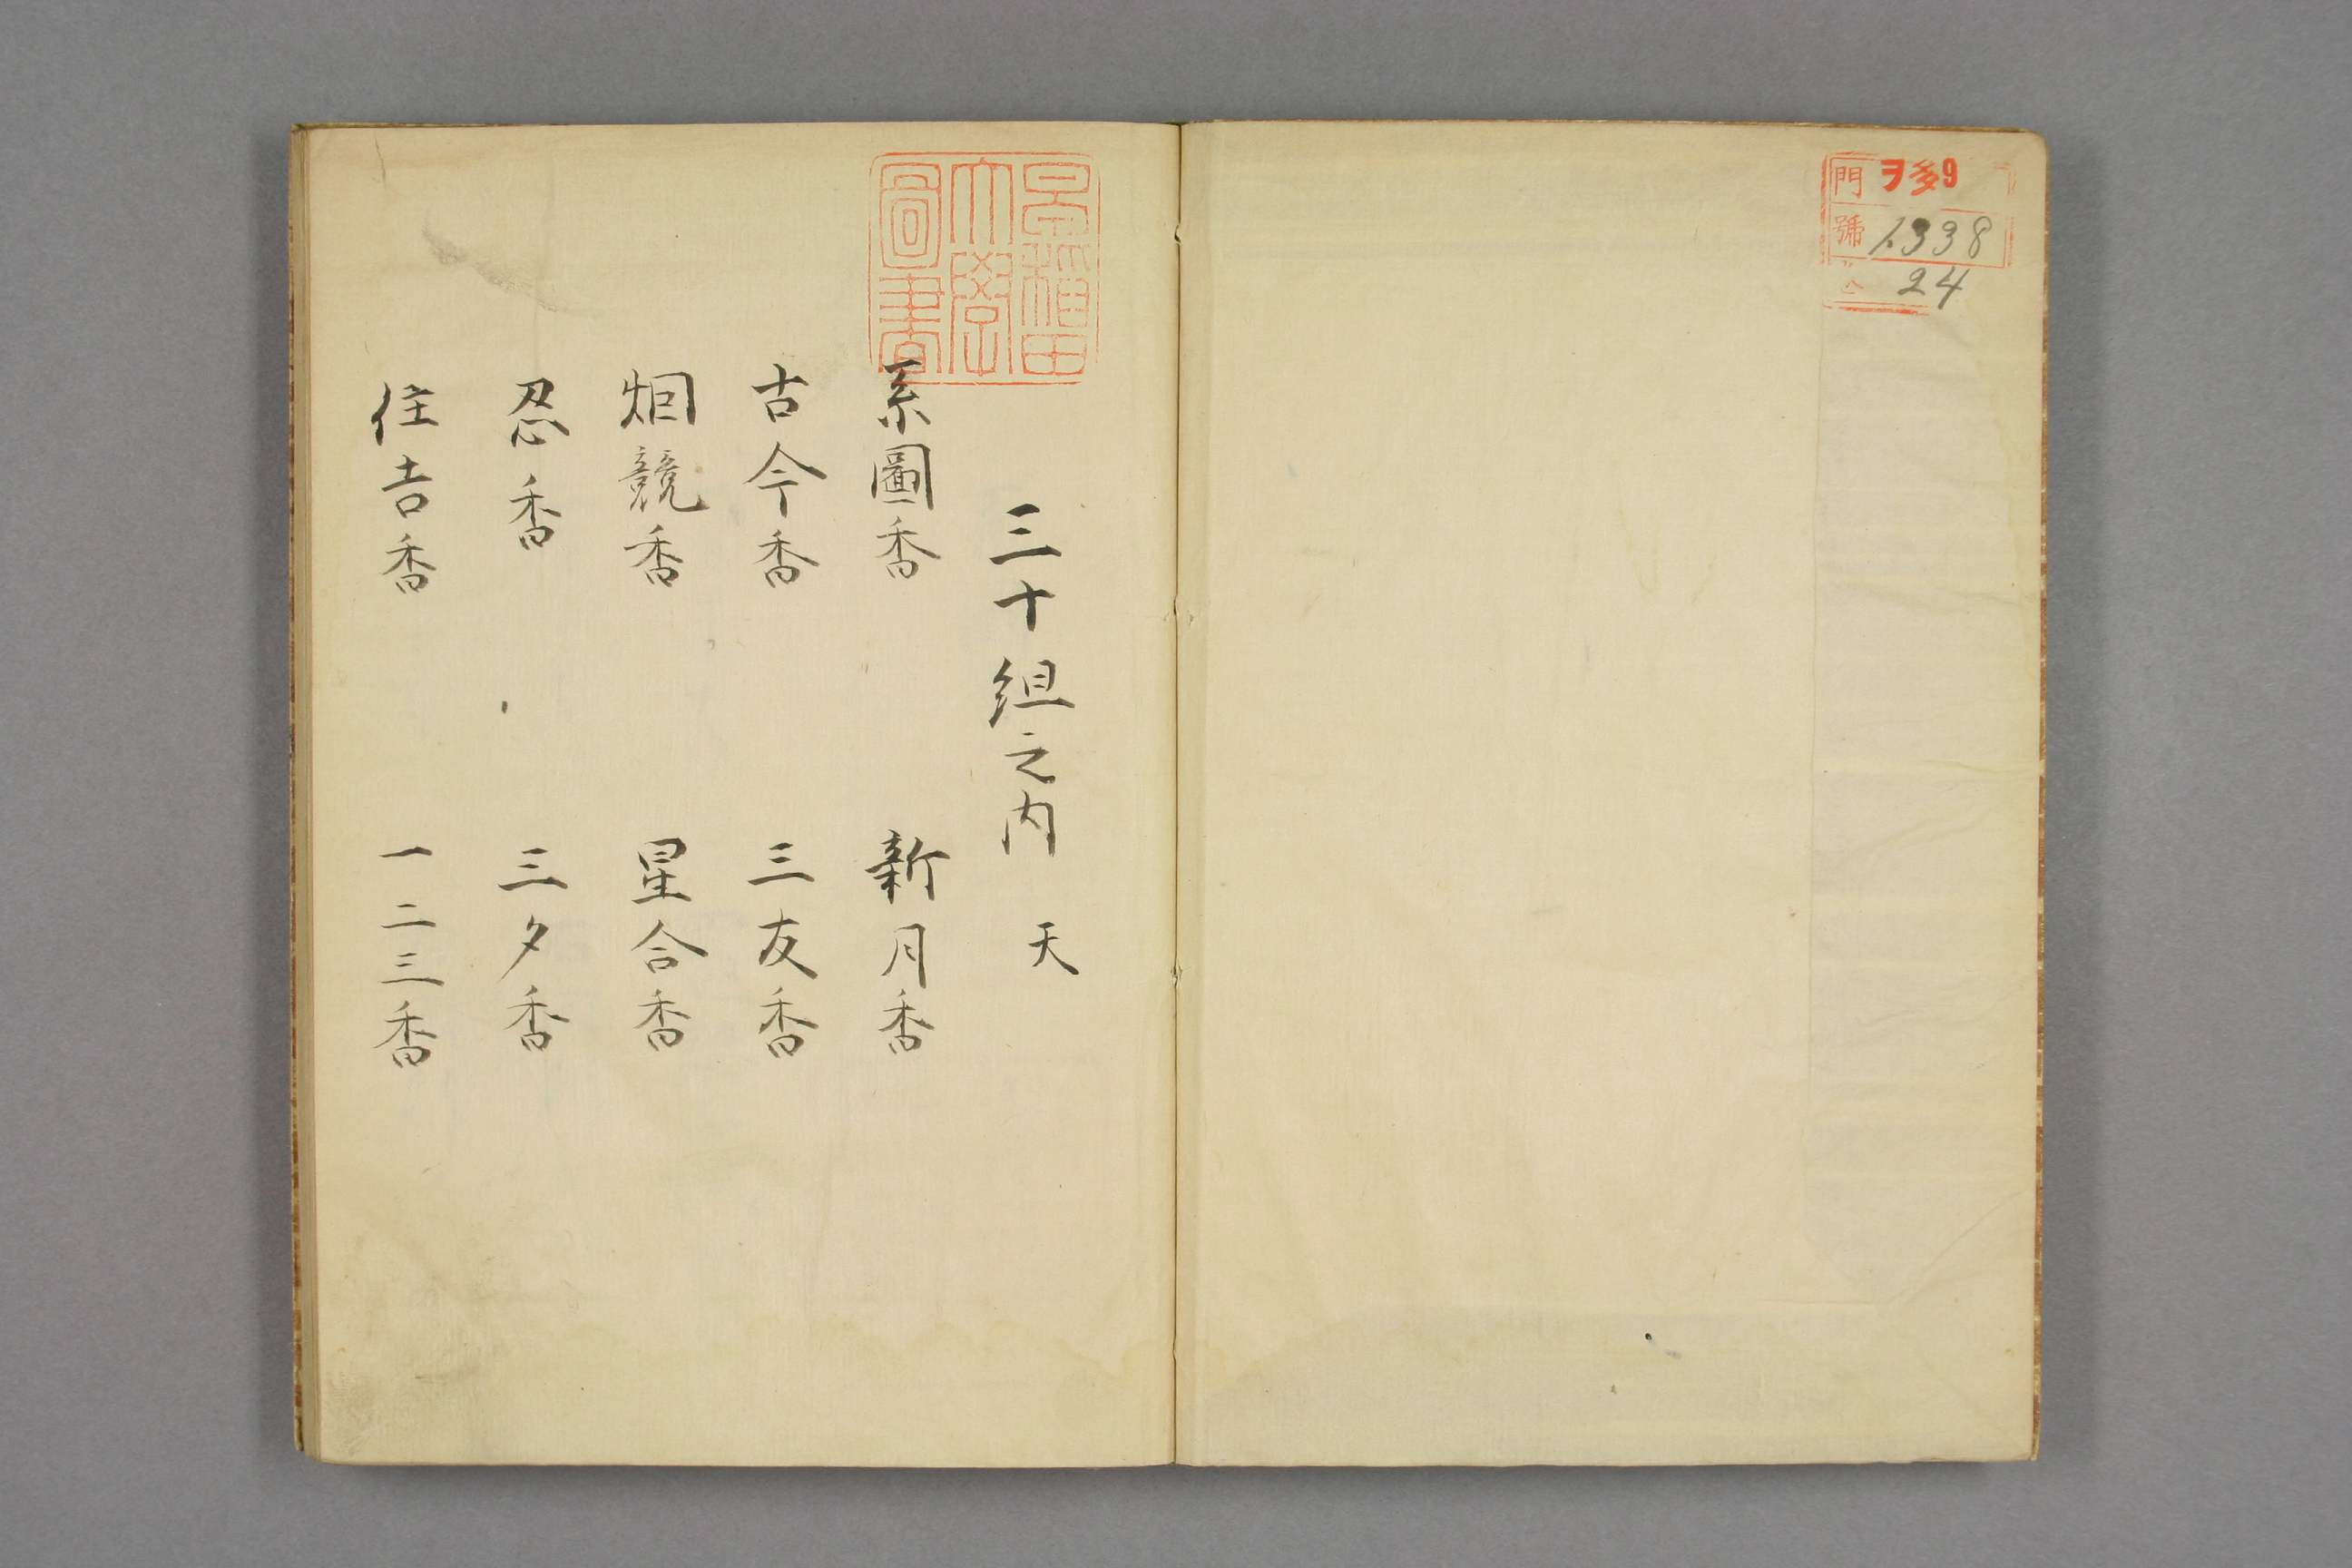 門 ヲ多9
號 1338
24
早稲田
大學
圖書
三十組之内 天
系圖香 新月香
古今香 三友香
烟競香 星合香
忍香 三夕香
住吉香 一二三香